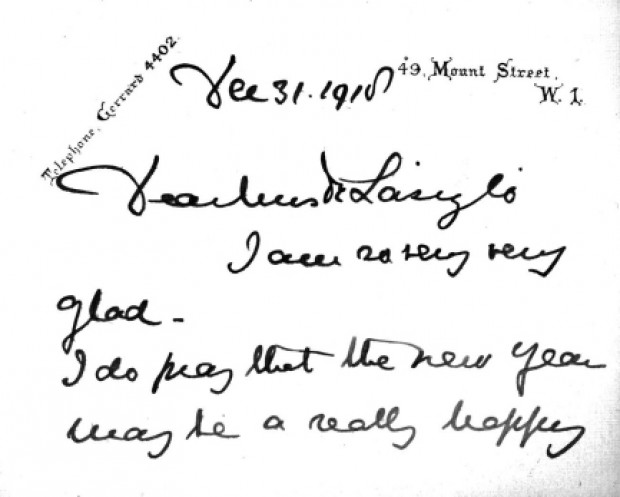 Telephone, Gerrard 4402.
49, Mount Street,
W. 1.
Dec 31. 1918
Dear Mrs de László
I am so very very
glad -
I do pray that the new year
may be a really happy